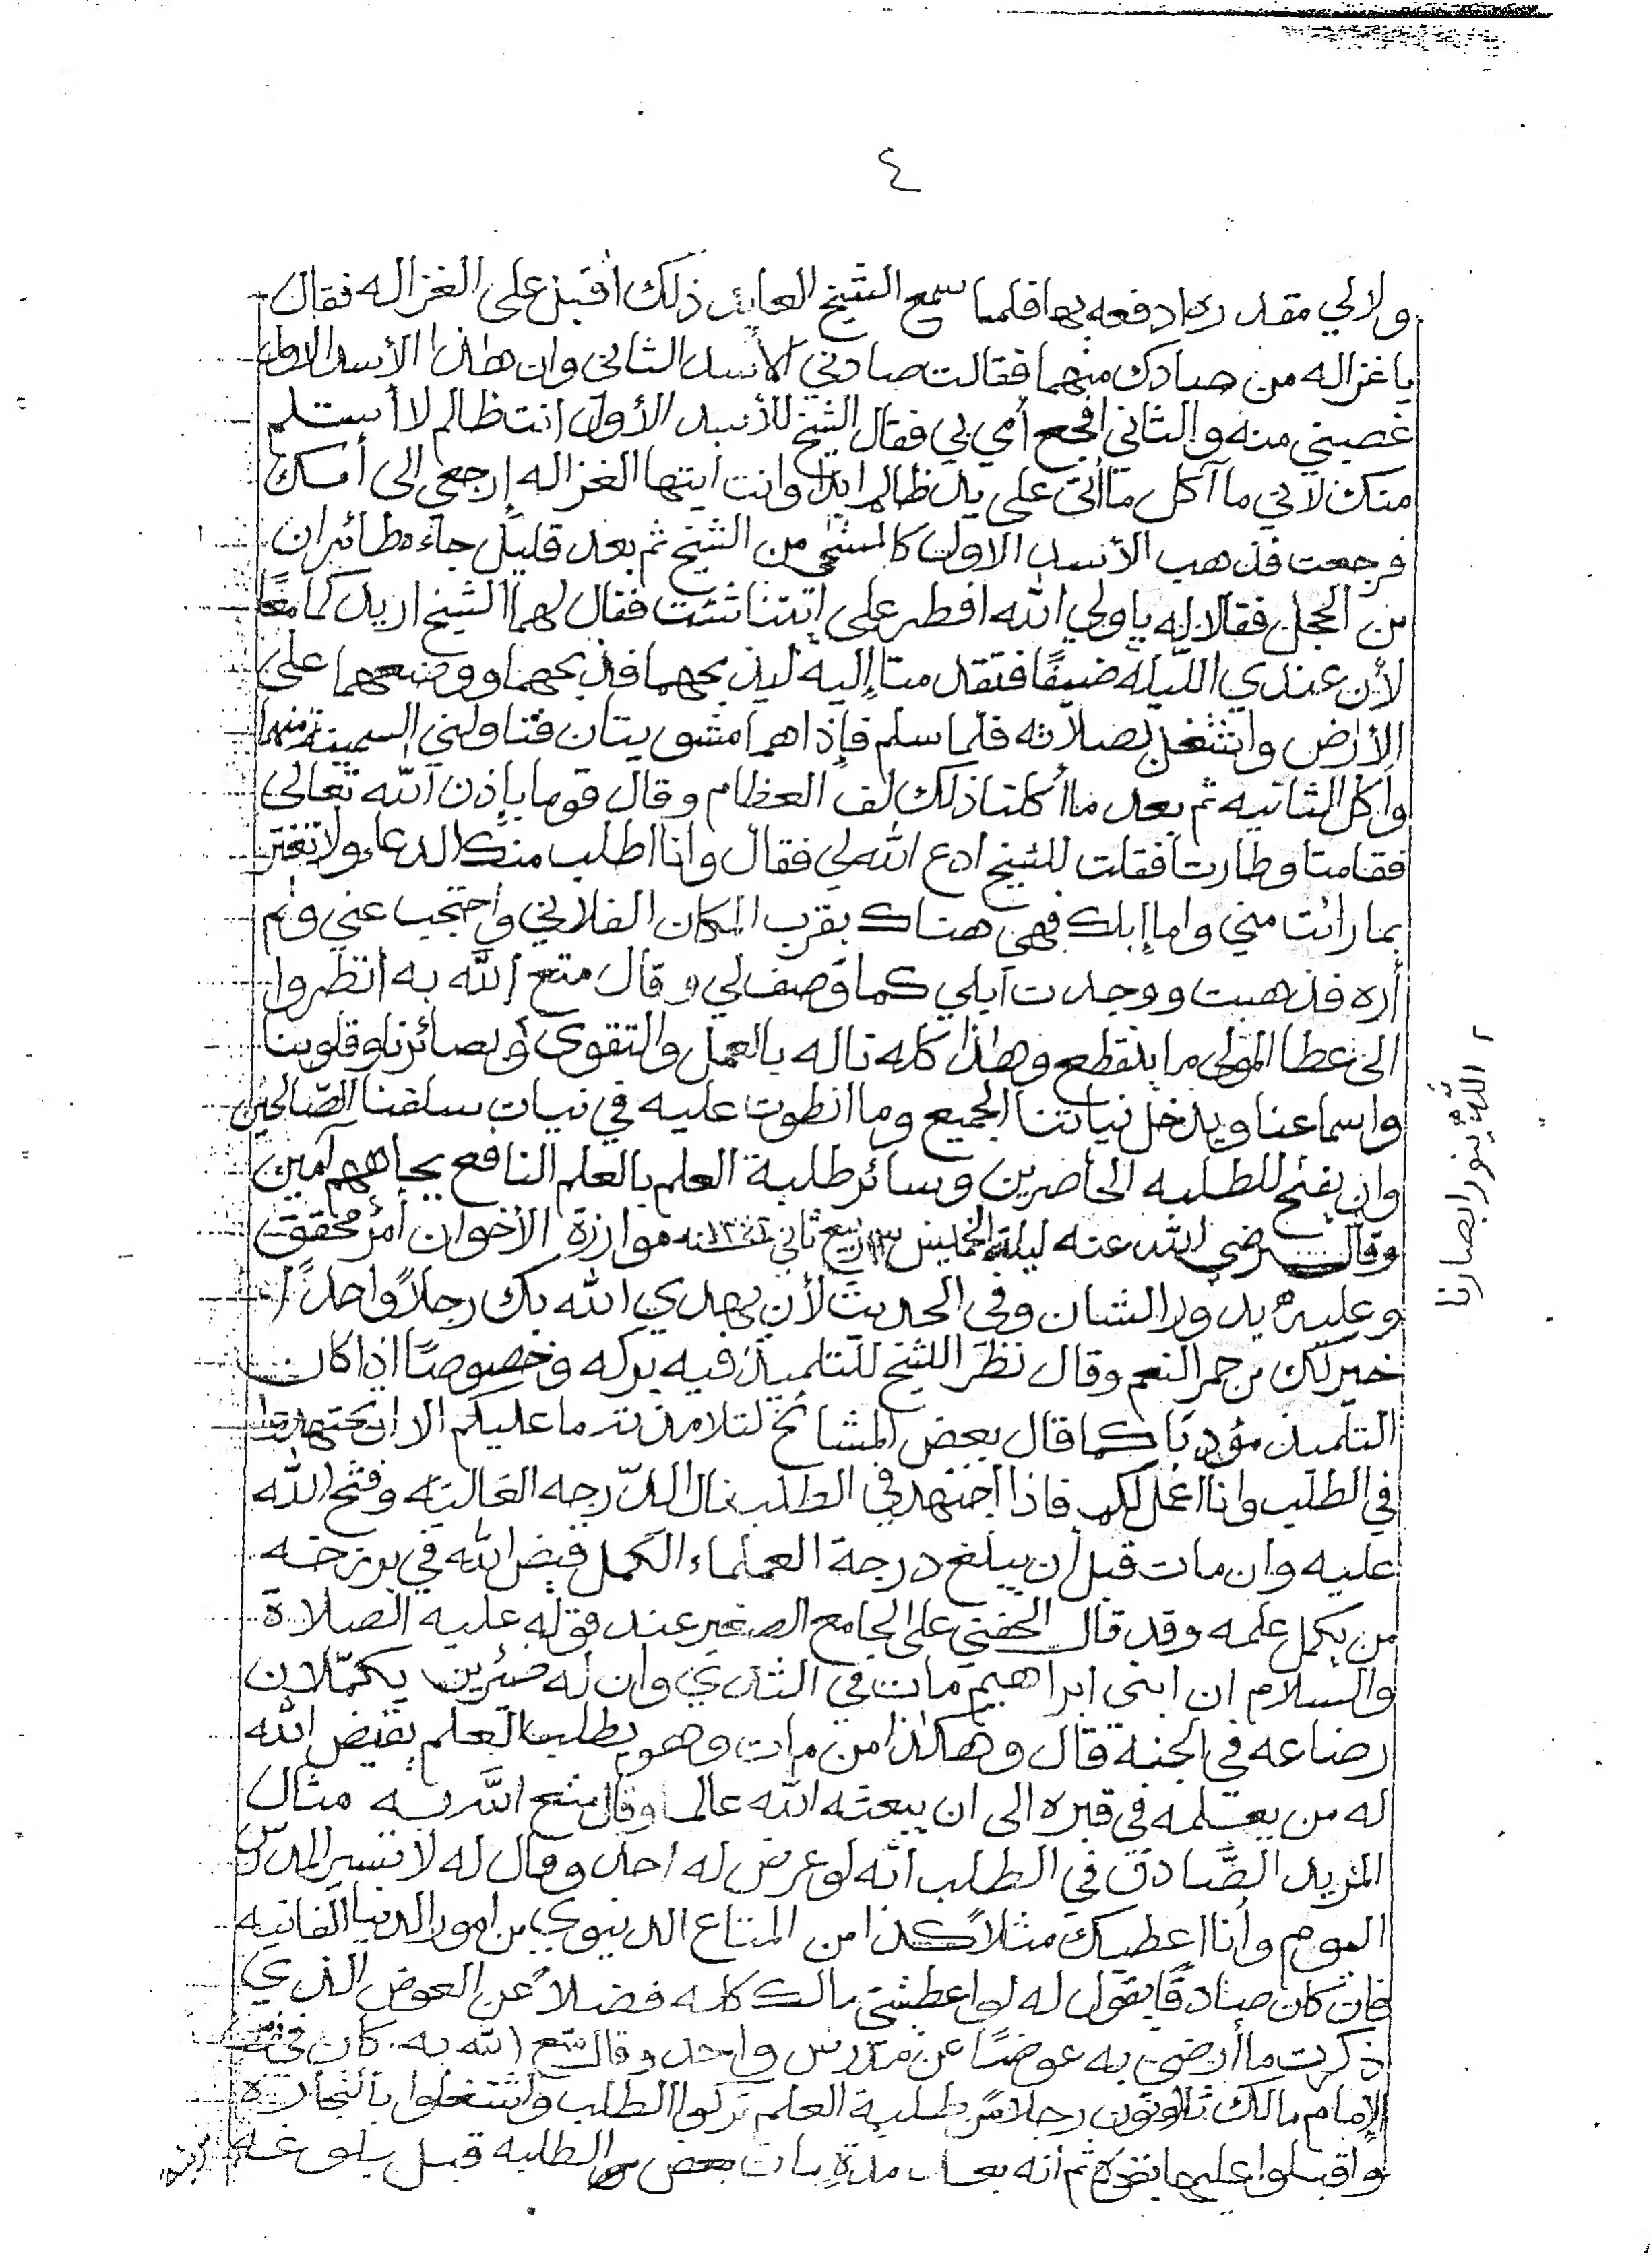 ٤
ولا لي مقدره ادفعه بها فلما سمع الشيخ العابد ذلك اقبل على الغزاله فقال
يا غزاله من صادك منهما فقالت صادني الأسد الثاني وان هذا الأسد الاول
غصبني منه والثاني افجع أمي بي فقال الشيخ للأسد الأول انت ظالم لا أستلم
منك لأني ما آكل ما أتى على يد ظالم ابدا وانت ايتها الغزاله إرجعي الى أمك
فرجعت فذهب الأسد الاول كالمستحي من الشيخ ثم بعد قليل جاءه طائران
من الحجل فقالا له يا ولي الله افطر على ايتنا شئت فقال لهما الشيخ اريدكما معًا
لأن عندي الليلة ضيفًا فتقدمتا إليه ليذبحهما فذبحهما ووضعهما على
الأرض واشتغل بصلاته فلما سلم فإذا هما مشويتان فناولني السمينة منهما
واكل الثانيه ثم بعد ما أكلنا ذلك لف العظام وقال قوما بإذن الله تعالى
فقامتا وطارتا فقلت للشيخ ادع الله لي فقال وانا اطلب منك الدعاء ولا تغتر
بما رائت مني واما إبلك فهي هناك بقرب المكان الفلاني واحتجب عني ولم
أره فذهبت ووجدت ابلي كما وصف لي وقال متع الله به انظروا
الى عطا المولى ما ينقطع وهذا كله ناله بالعمل والتقوى وبصائرنا وقلوبنا
واسماعنا ويدخل نياتنا الجميع وما انطوت عليه في نيات سلفنا الصّالحين
وان يفتح للطلبه الحاضرين وسائر طلبة العلم بالعلم النافع بجاههم آمين
وقال رضي الله عنه ليلة الخميس ربيع ثاني سنه موازرة الأخوان أمر محقق
وعليه يدور الشان وفي الحديث لأن يهدي الله بك رجلاً واحداً
خير لك من حمر النعم وقال نظر الشيخ للتلميذ فيه بركه وخصوصًا اذا كان
التلميذ مؤدبًا كما قال بعض المشائخ لتلامذته ما عليكم الا ان تجتهدوا
في الطلب وانا لكم فاذا اجتهد في الطلب نال الدّرجه العاليه وفتح الله
عليه وان مات قبل أن يبلغ درجة العلماء الكمل قيض الله في برزخه
من يكمل علمه وقد قال الحفني على الجامع الصغير عند قوله عليه الصلاة
والسلام ان ابني ابراهيم مات في الثدي وان له ضئرين يكمّلان
رضاعه في الجنة قال وهكذا من مات وهو يطلب العلم يقيض الله
له من يعلمه في قبره الى ان يبعثه الله عالما وقال متع الله به مثال
المريد الصّادق في الطلب انه لو عرض له احد وقال له لا تسير المدرس
اليوم وأنا اعطيك مثلاً كذا من المتاع الدنيوي من امور الدنيا الفانيه
فان كان صادقًا يقول له لو اعطيتني مالك كله فضلاً عن العوض الذي
ذكرت ما أرضى به عوضًا عن مدرس واحد وقال متع الله به كان في
الإمام مالك ثلاثون رجلا من طلبة العلم تركوا الطلب واشتغلوا بالتجارة
واقبلوا عليها بقوه ثم انه بعد مدة مات بعض الطلبه قبل بلوغه
اللّه ينور ابصارنا